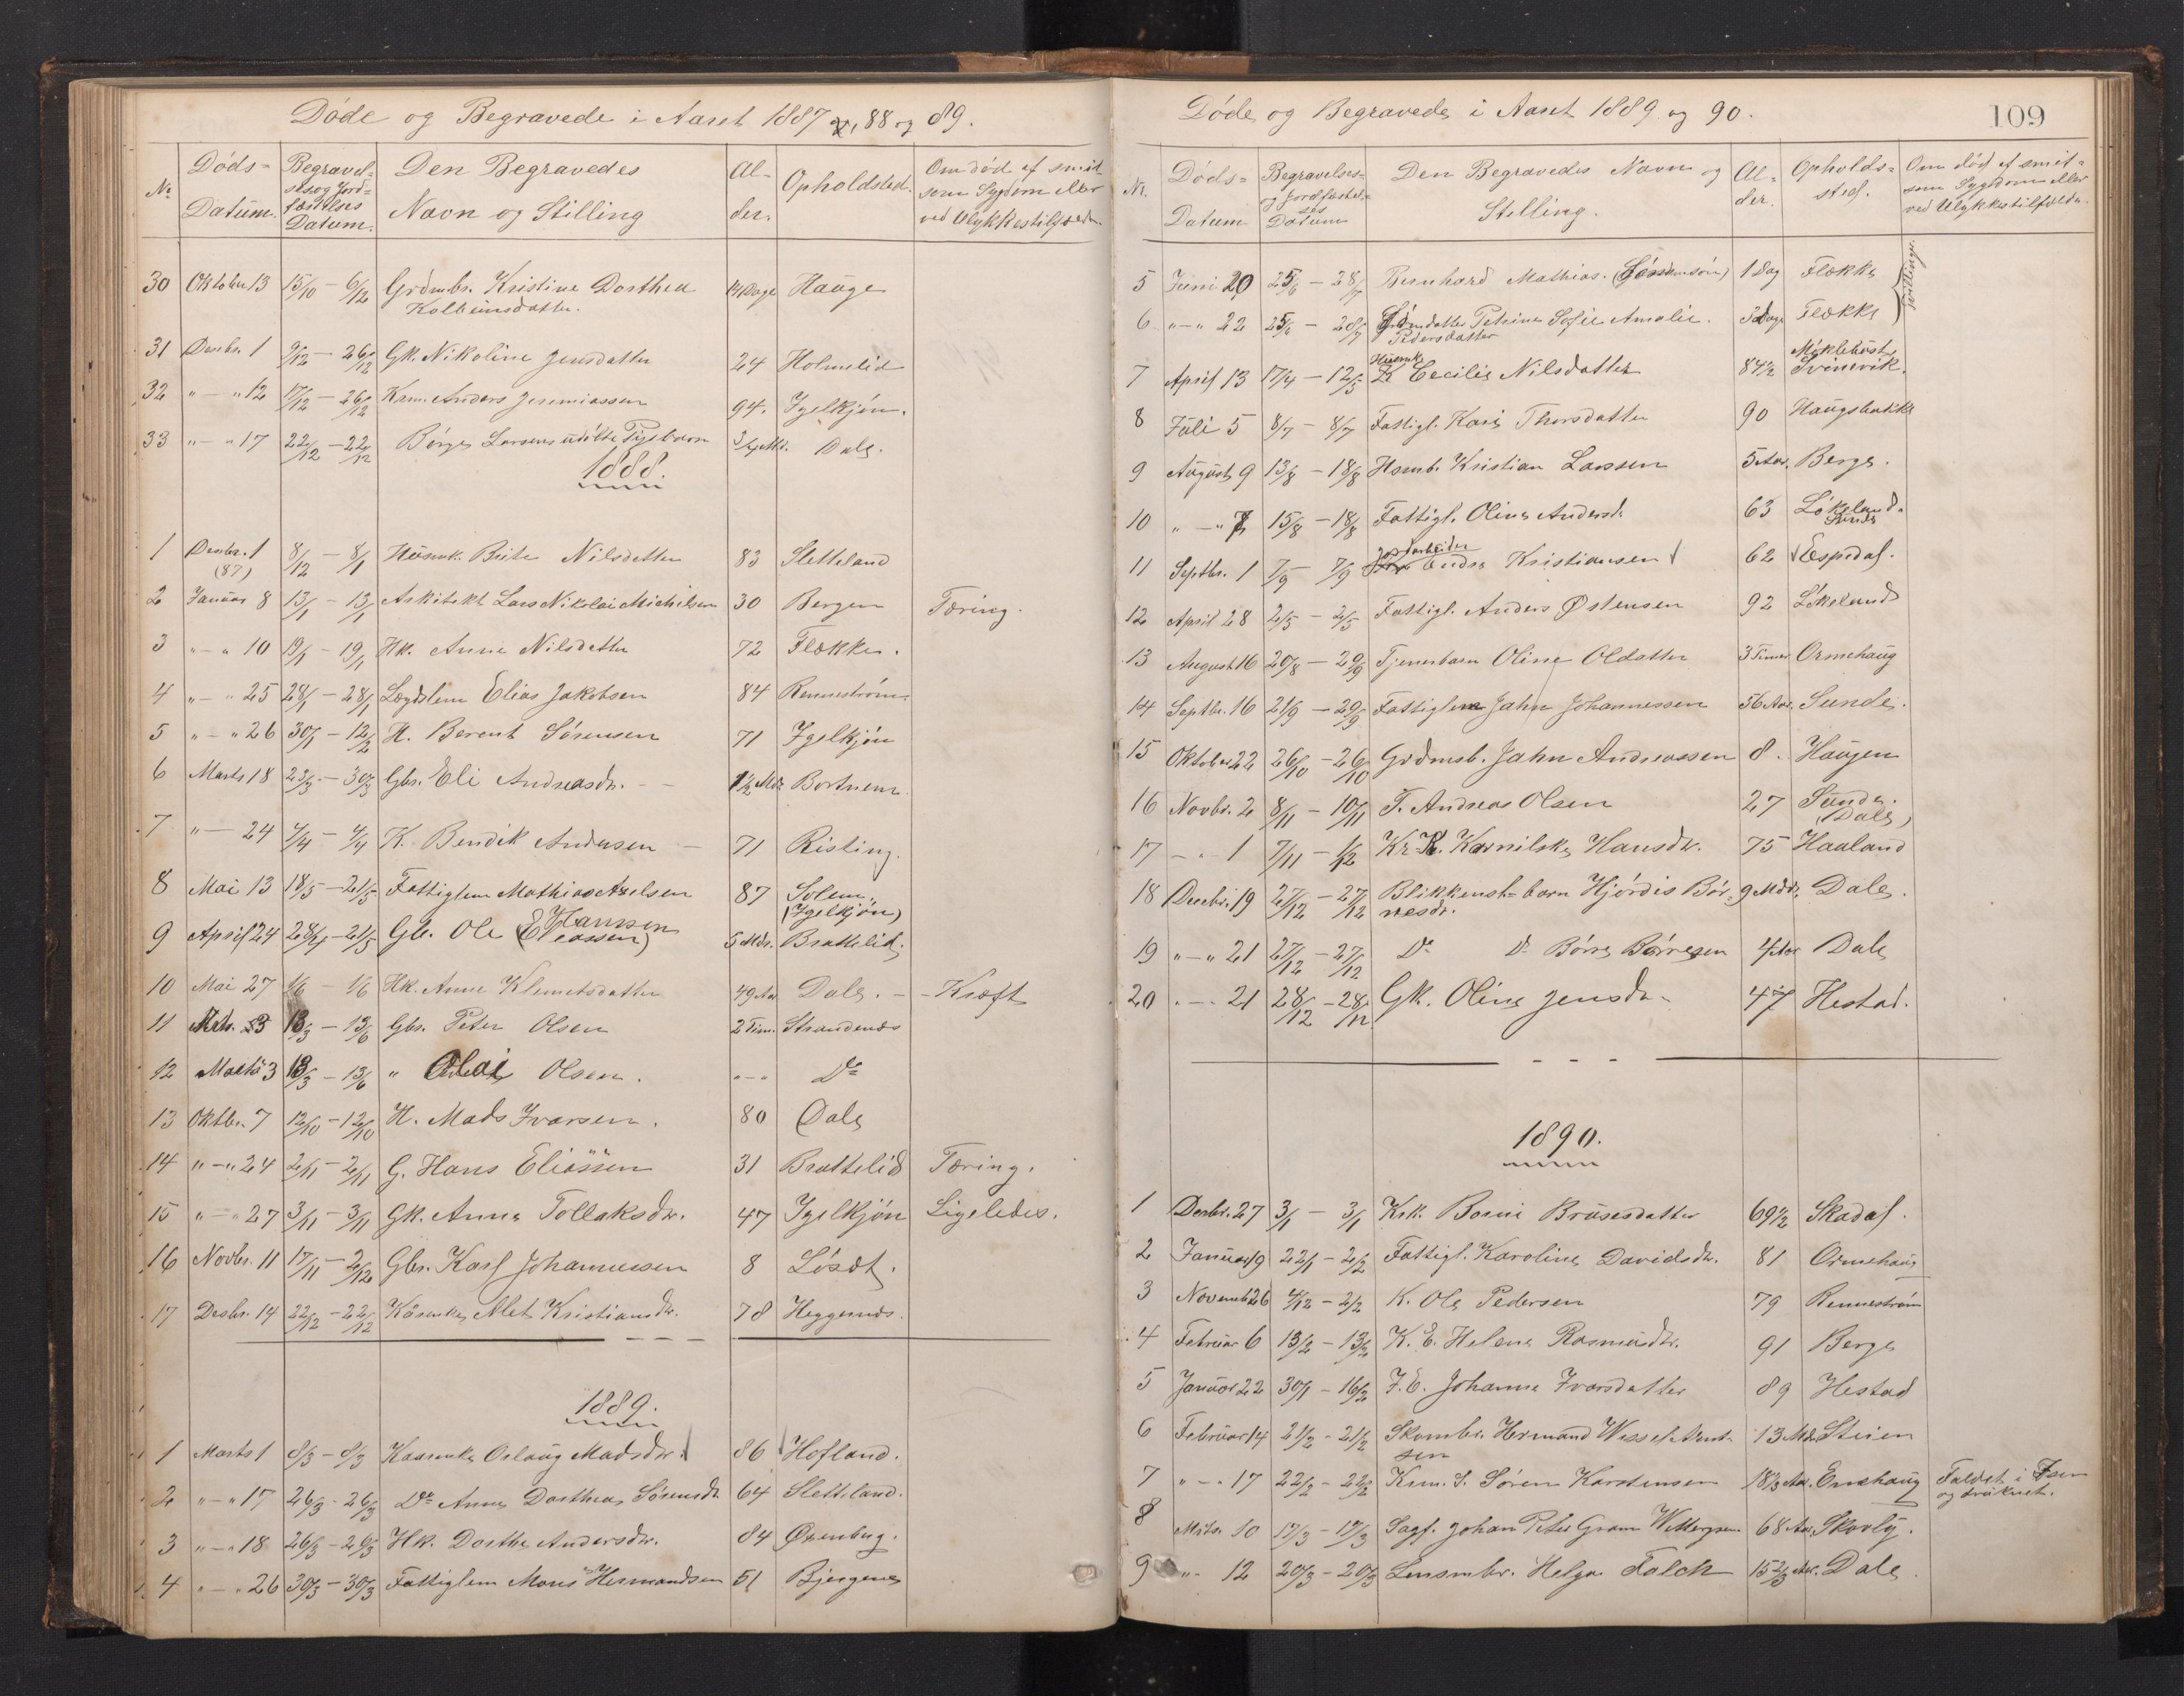 Døde og Begravede i Aaret 1887, 88 og 89.
Nr. Døds-Datum. Begravelses og Jordfæstelses Datum. Den Begravedes Navn og Stilling Alder. Opholdsted. Om død af smitsom Sygdom eller ved Ulykkestilfælde.
30 Oktober 13 15/10 - 6/12 Grdmbr. Kristine Dorthea 14 Dage Hauge
Kolbeinsdatter.
31 Desbr. 1 9/12 - 26/12 Gk. Nikoline Jensdatter 24 Holmelid
32 " - " 12 17/12 - 26/12 Anders Jeremiassen 94. Igelkjøn.
33 " - " 17 22/12 - 22/12 Børge Larsens udøbte Pigebarn 3/4 Mdr. Dale.
1888.
1 Desbr. 1 (87) 8/12 - 8/1 Husmk. Brite Nilsdatter 83 Sletteland
2 Januar 8 13/1 - 13/1 Arkitekt Lars Nikolai Michelsen 30 Bergen Tæring.
3 " - " 10 19/1 - 19/1 Hk. Anne Nilsdatter 72 Flekke.
4 " - " 25 28/1 - 28/1 Lægdslem Elias Jakobsen 84 Rennestrøm
5 " - " 26 30/1 - 12/2 H. Berent Sørensen 71 Igelkjøn
6 Marts 18 23/3 - 30/3 Gbr. Eli Andreasdr. 1 1/2 Mdr. Bortnem
7 " - 24 4/4 - 4/4 K. Bendik Andersen 71 Risting.
8 Mai 13 18/5 - 21/5 Fattiglem Mathias Axelsen 87 Solem.
(Igelkjøn)
9 April 24 28/4 - 21/5 Gb. Ole Hansen (Eliassen) 5 Mdr. Brattelid.
10 Mai 27 1/6 - 1/6 Hk. Anne Klemetsdatter 49 Aar Dale. - Kræft
11 Mrts. 3 13/3 - 13/6 Gbr. Peter Olsen 2 Tim. Strandenæs
12 Marts 3 13/3 - 13/6 " Olai Olsen. " - " Do
13 Oktbr. 7 12/10 - 12/10 H. Mads Ivarsen. 80 Dale
14 " - " 24 2/11 - 2/11 G. Hans Eliassen 31 Brattelid Tæring.
15 " - " 27 3/11 - 3/11 Gk. Anne Tollaksdr. 47 Igelkjøn Ligeledes.
16 Novbr. 11 17/11 - 2/12 Gbr. Karl Johannessen 8 Løsæt.
17 Desbr. 14 22/12 - 22/12 Kårenke Alet Kristiansdr. 78 Heggenæs.
1889.
1 Marts 1 8/3 - 8/3 Kaarenke Oslaug Madsdr. 86 Hofland.
2 " - " 17 26/3 - 26/3 Do Anne Dorthea Sørensdr. 64 Sletteland.
3 " - " 18 26/3 - 26/3 Hk. Dorthe Andersdr. 84 Øxenberg.
4 " - " 26 30/3 - 30/3 Fattiglem Mons Hermandsen 51 Bjergene
Døde og Begravede i Aaret 1889 og 90.
109
Nr. Døds-Datum Begravelses- og Jordfæstelses Datum Den Begravedes Navn og Stilling. Alder. Opholdssted. Om død af smitsom Sygdom eller ved Ulykkestilfælde.
5 Juni 20 25/6 - 28/7 Bernhard Mathias. 1 Dag Flekke
6 " - " 22 25/6 - 28/7 Petrine Sofie Amalie. 3 Dage Flekke
Pedersdatter
Tvillinger
7 April 13 17/4 - 12/5 K Cecilie Nilsdatter 84 1/2 Møklebust
Svinevik.
8 Juli 5 8/7 - 8/7 Fattigl. Kari Thorsdatter 90
9 August 9 13/8 - 18/8 Husmb. Kristian Larsen 5 Aar. Berge.
10 " - " 15/8 - 18/8 Fattigl. Oline Andersdr. 63 Løkeland.
Sunde
11 Septbr. 1 7/9 - 7/9 Jordarbeider Endre Kristiansen 62 Espedal.
12 April 28 2/5 - 2/5 Fattigl. Anders Østensen 92 Løkeland
13 August 16 20/8 - 29/9 Tjenerbarn Oline Olsdatter 3 Timer Ormehaug
14 Septbr. 16 21/9 - 29/9 Fattiglem Jahn Johannessen 56 Aar. Sunde.
15 Oktober 22 26/10 - 26/10 Grdmsb. Jahn Andreassen 8. Haugen
16 Novbr. 2 8/11 - 10/11 T. Andreas Olsen 27 Sunde.
(Dale)
17 - " 1 7/11 - 1/12 Kr. K. Kornilske Hansdr. 75 Haaland
18 Decbr. 19 27/12 - 27/12 Blikkensl-barn Hjørdis Bør- 9 Mdr. Dale.
resdr.
19 " - " 21 27/12 - 27/12 Do Do Børre Børresen 4 Aar Dale
20 " - " 21 28/12 - 28/12 Gk. Oline Jensdr. 47 Hestad.
1890.
1 Desbr. 27 3/1 - 3/1 Krk. Borni Brusesdatter 69 1/2 Skadal.
2 Januar 19 22/1 - 2/2 Fattigl. Karoline Davidsdr. 81 Ormehaug
3 Novemb. 26 4/12 - 2/2 K. Ole Pedersen 79 Rennestrøm
4 Februar 6 13/2 - 13/2 K. E. Helene Rasmusdr. 91 Berge
5 Januar 22 30/1 - 16/2 F. E. Johanne Ivarsdatter 89 Hestad
6 Februar 14 21/2 - 21/2 Skombr. Hermand Wessel Arnt- 13 Mdr. Steien
sen
7 " - " 17 22/2 - 22/2 Krm. S. Søren Karstensen 18 1/3 Aar. Enehaug Faldet i Isen
og druknet.
8 Mrts. 10 17/3 - 17/3 Sagf. Johan Peter Gram Wittergreen 68 Aar. Skovly.
9 " - 12 20/3 - 20/3 Lensmbr. Helga Falch 15 2/3 Aar. Dale.